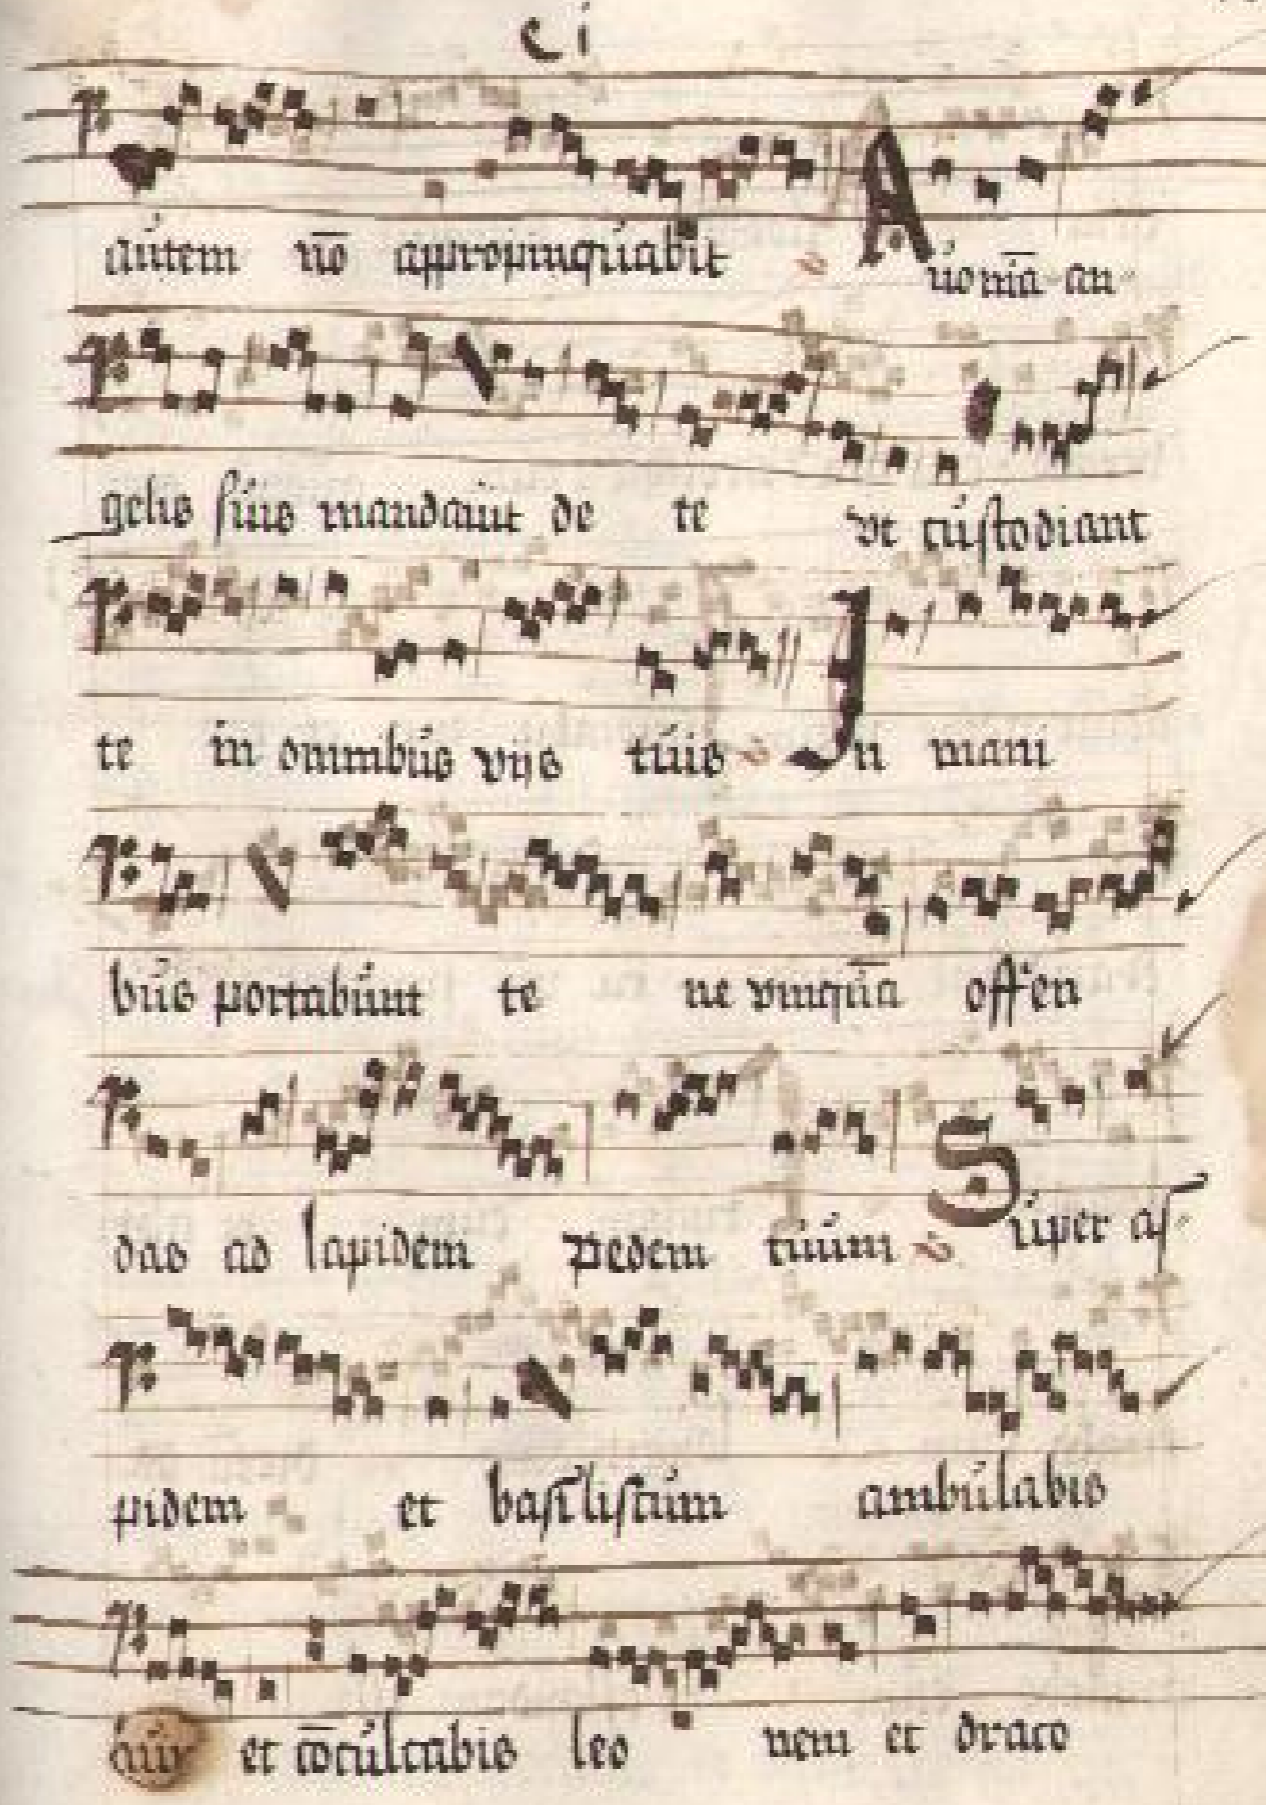 ci
autem nō appropinquabit Auoniā an-
gelis suis mandauit de te vt custodiant
te in omnibus vijs tuis In mani
bus portabunt te ne vnquā offen
das ad lapidem pedem tuum Super as-
pidem et basiliscum ambulabis
et cōculcabis leo nem et draco